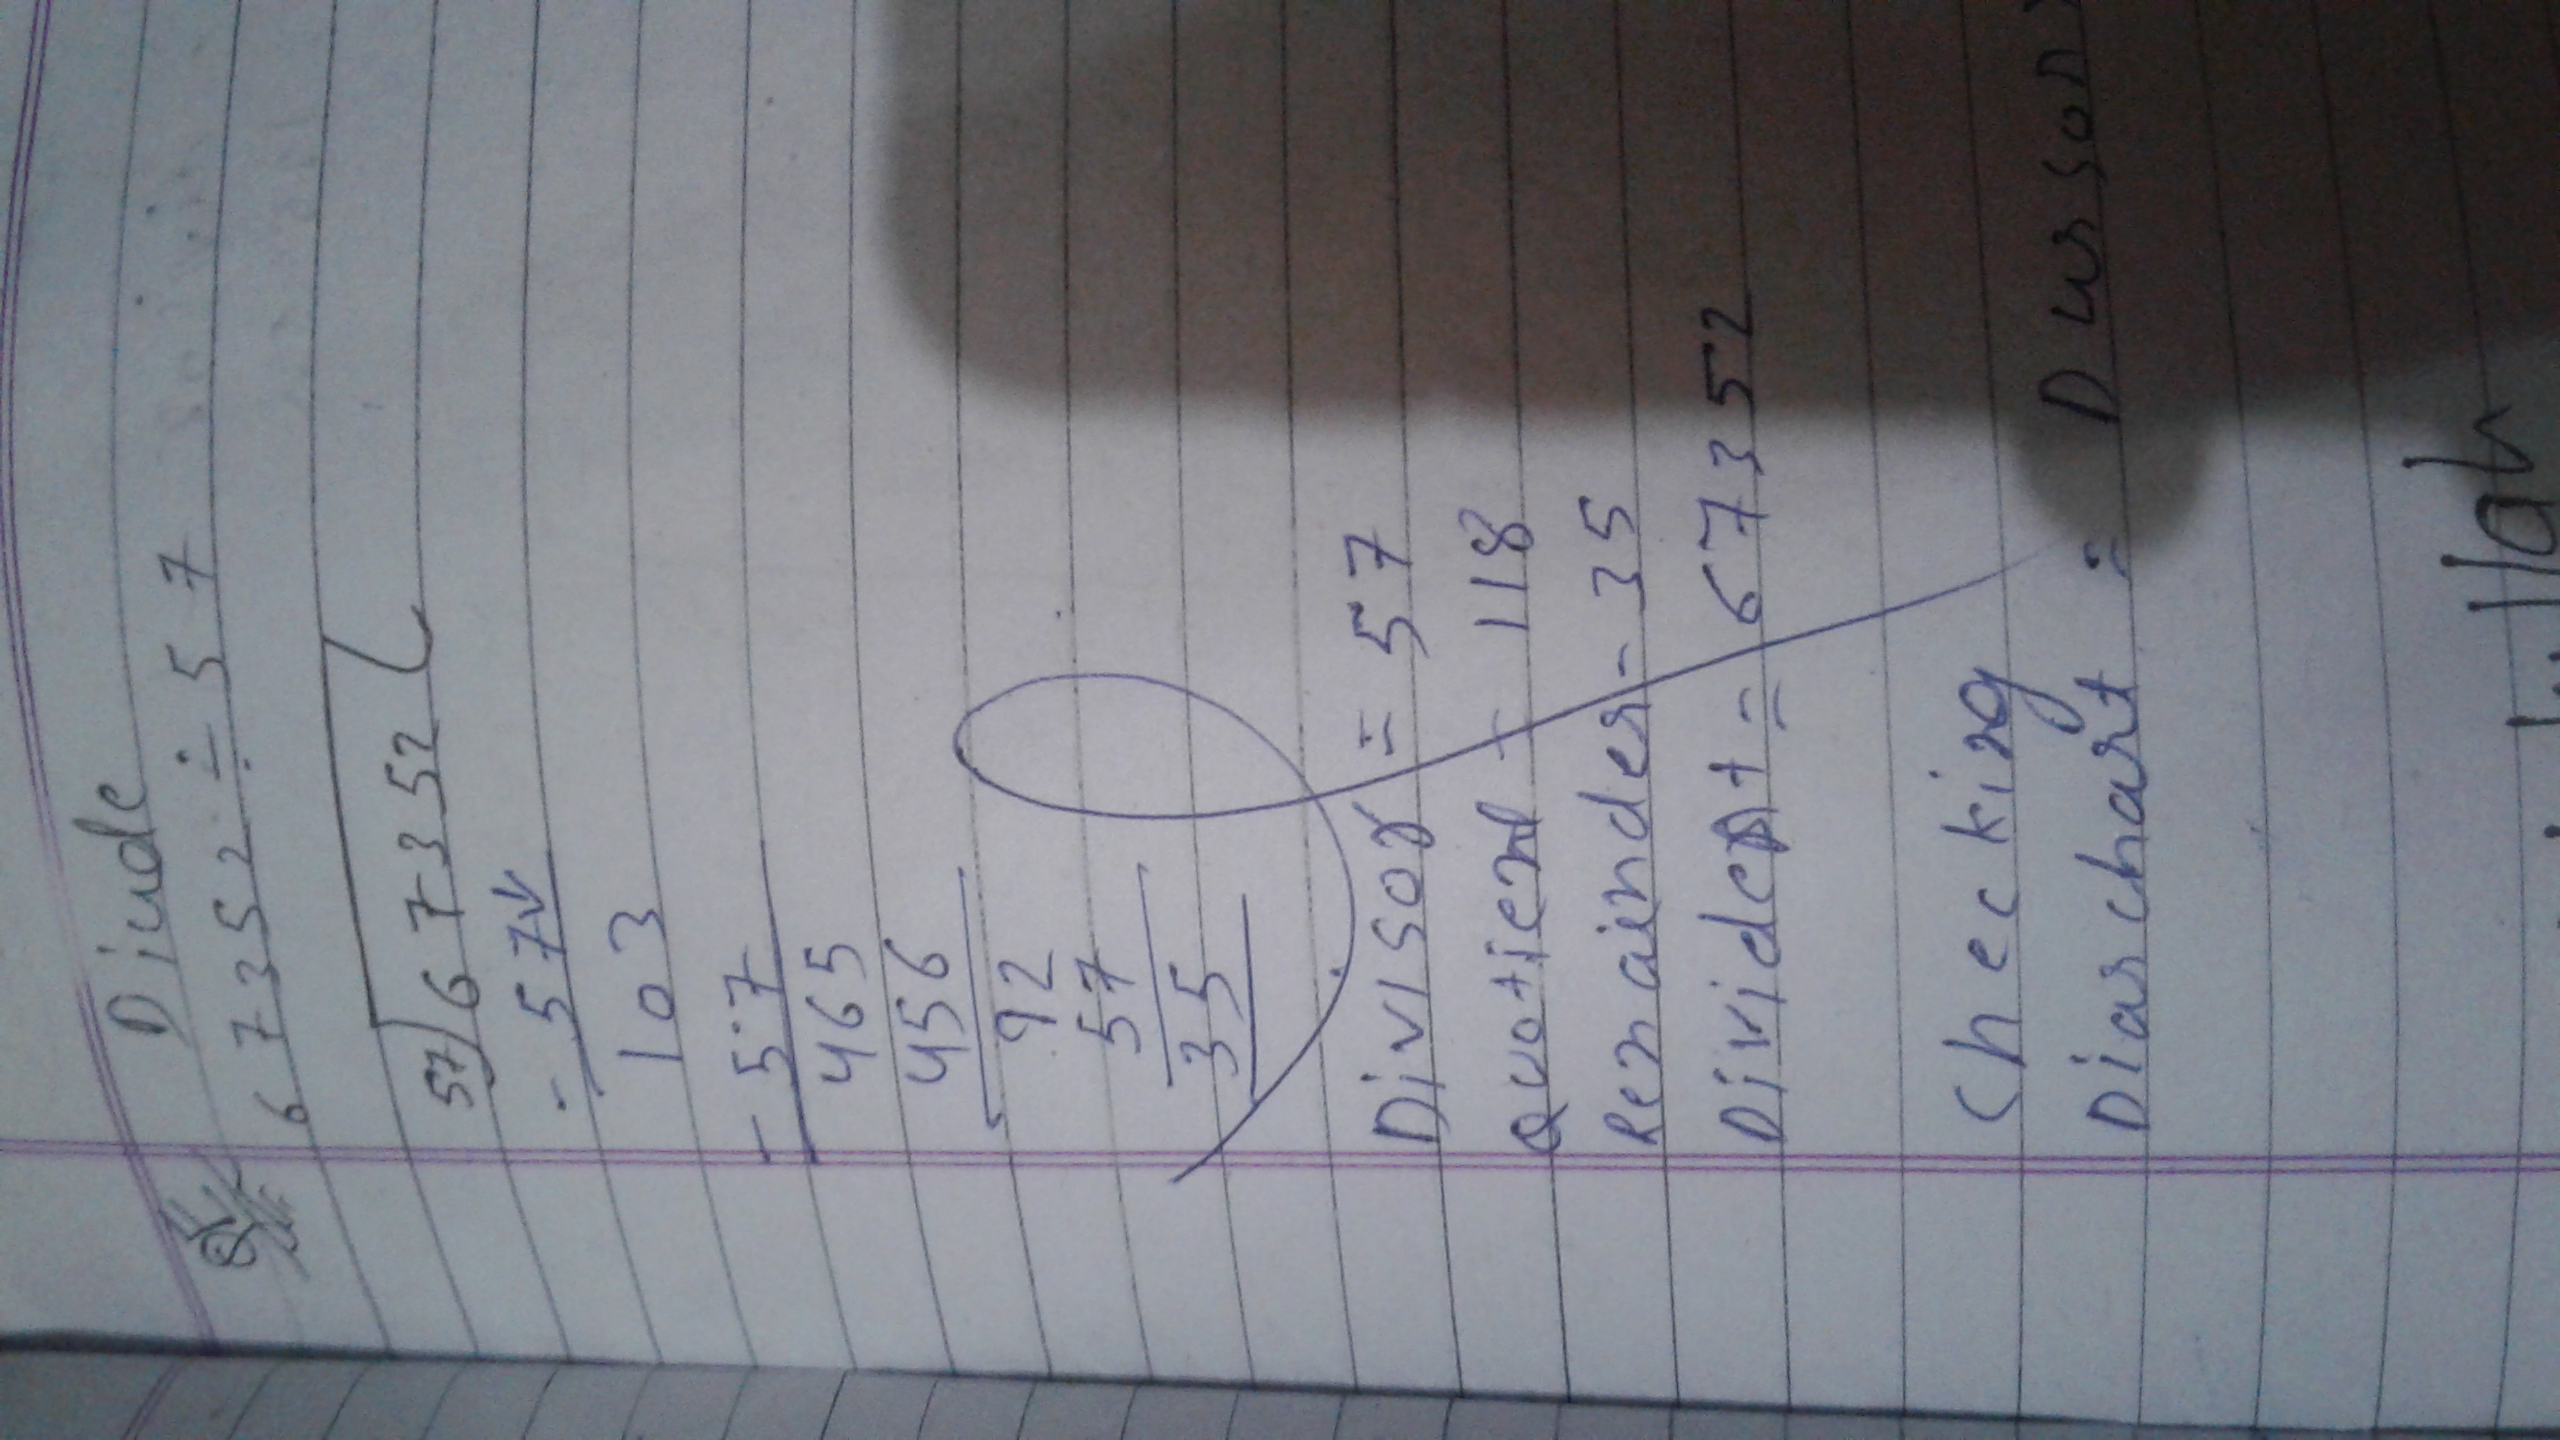 Divide
67352 ÷ 57
57)67352(
- 57↓
103
- 57
465
456
92
57
35
Divisor = 57
Quotient - 118
Remainder - 35
Divident = 67352
Checking